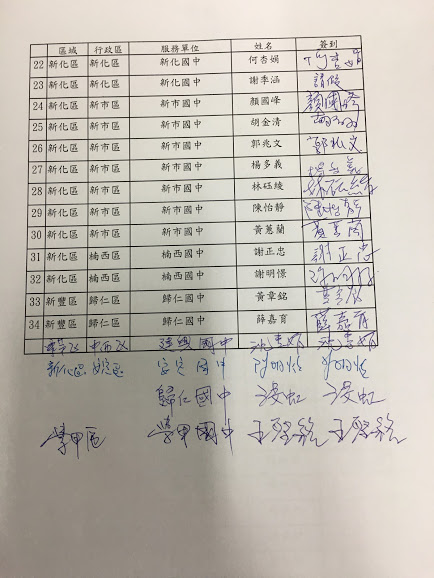 區域 行政區 服務單位 姓名 簽到
22 新化區 新化區 新化國中 何杏娟 何杏娟
23 新化區 新化區 新化國中 謝季涵 請假
24 新化區 新市區 新市國中 顏國峰 顏國峰
25 新化區 新市區 新市國中 胡金清
26 新化區 新市區 新市國中 郭兆文 郭兆文
27 新化區 新市區 新市國中 楊多義 楊多義
28 新化區 新市區 新市國中 林砡綾 林砡綾
29 新化區 新市區 新市國中 陳怡靜 陳怡靜
30 新化區 新市區 新市國中 黃蕙蘭 黃蕙蘭
31 新化區 楠西區 楠西國中 謝正忠 謝正忠
32 新化區 楠西區 楠西國中 謝明憬
33 新豐區 歸仁區 歸仁國中 黃章銘
34 新豐區 歸仁區 歸仁國中 薛嘉育 薛嘉育
中西區 建興國中
新化區 安定區 安定國中
歸仁國中 凌虹 凌虹
學甲區 學甲國中 王聖銘 王聖銘